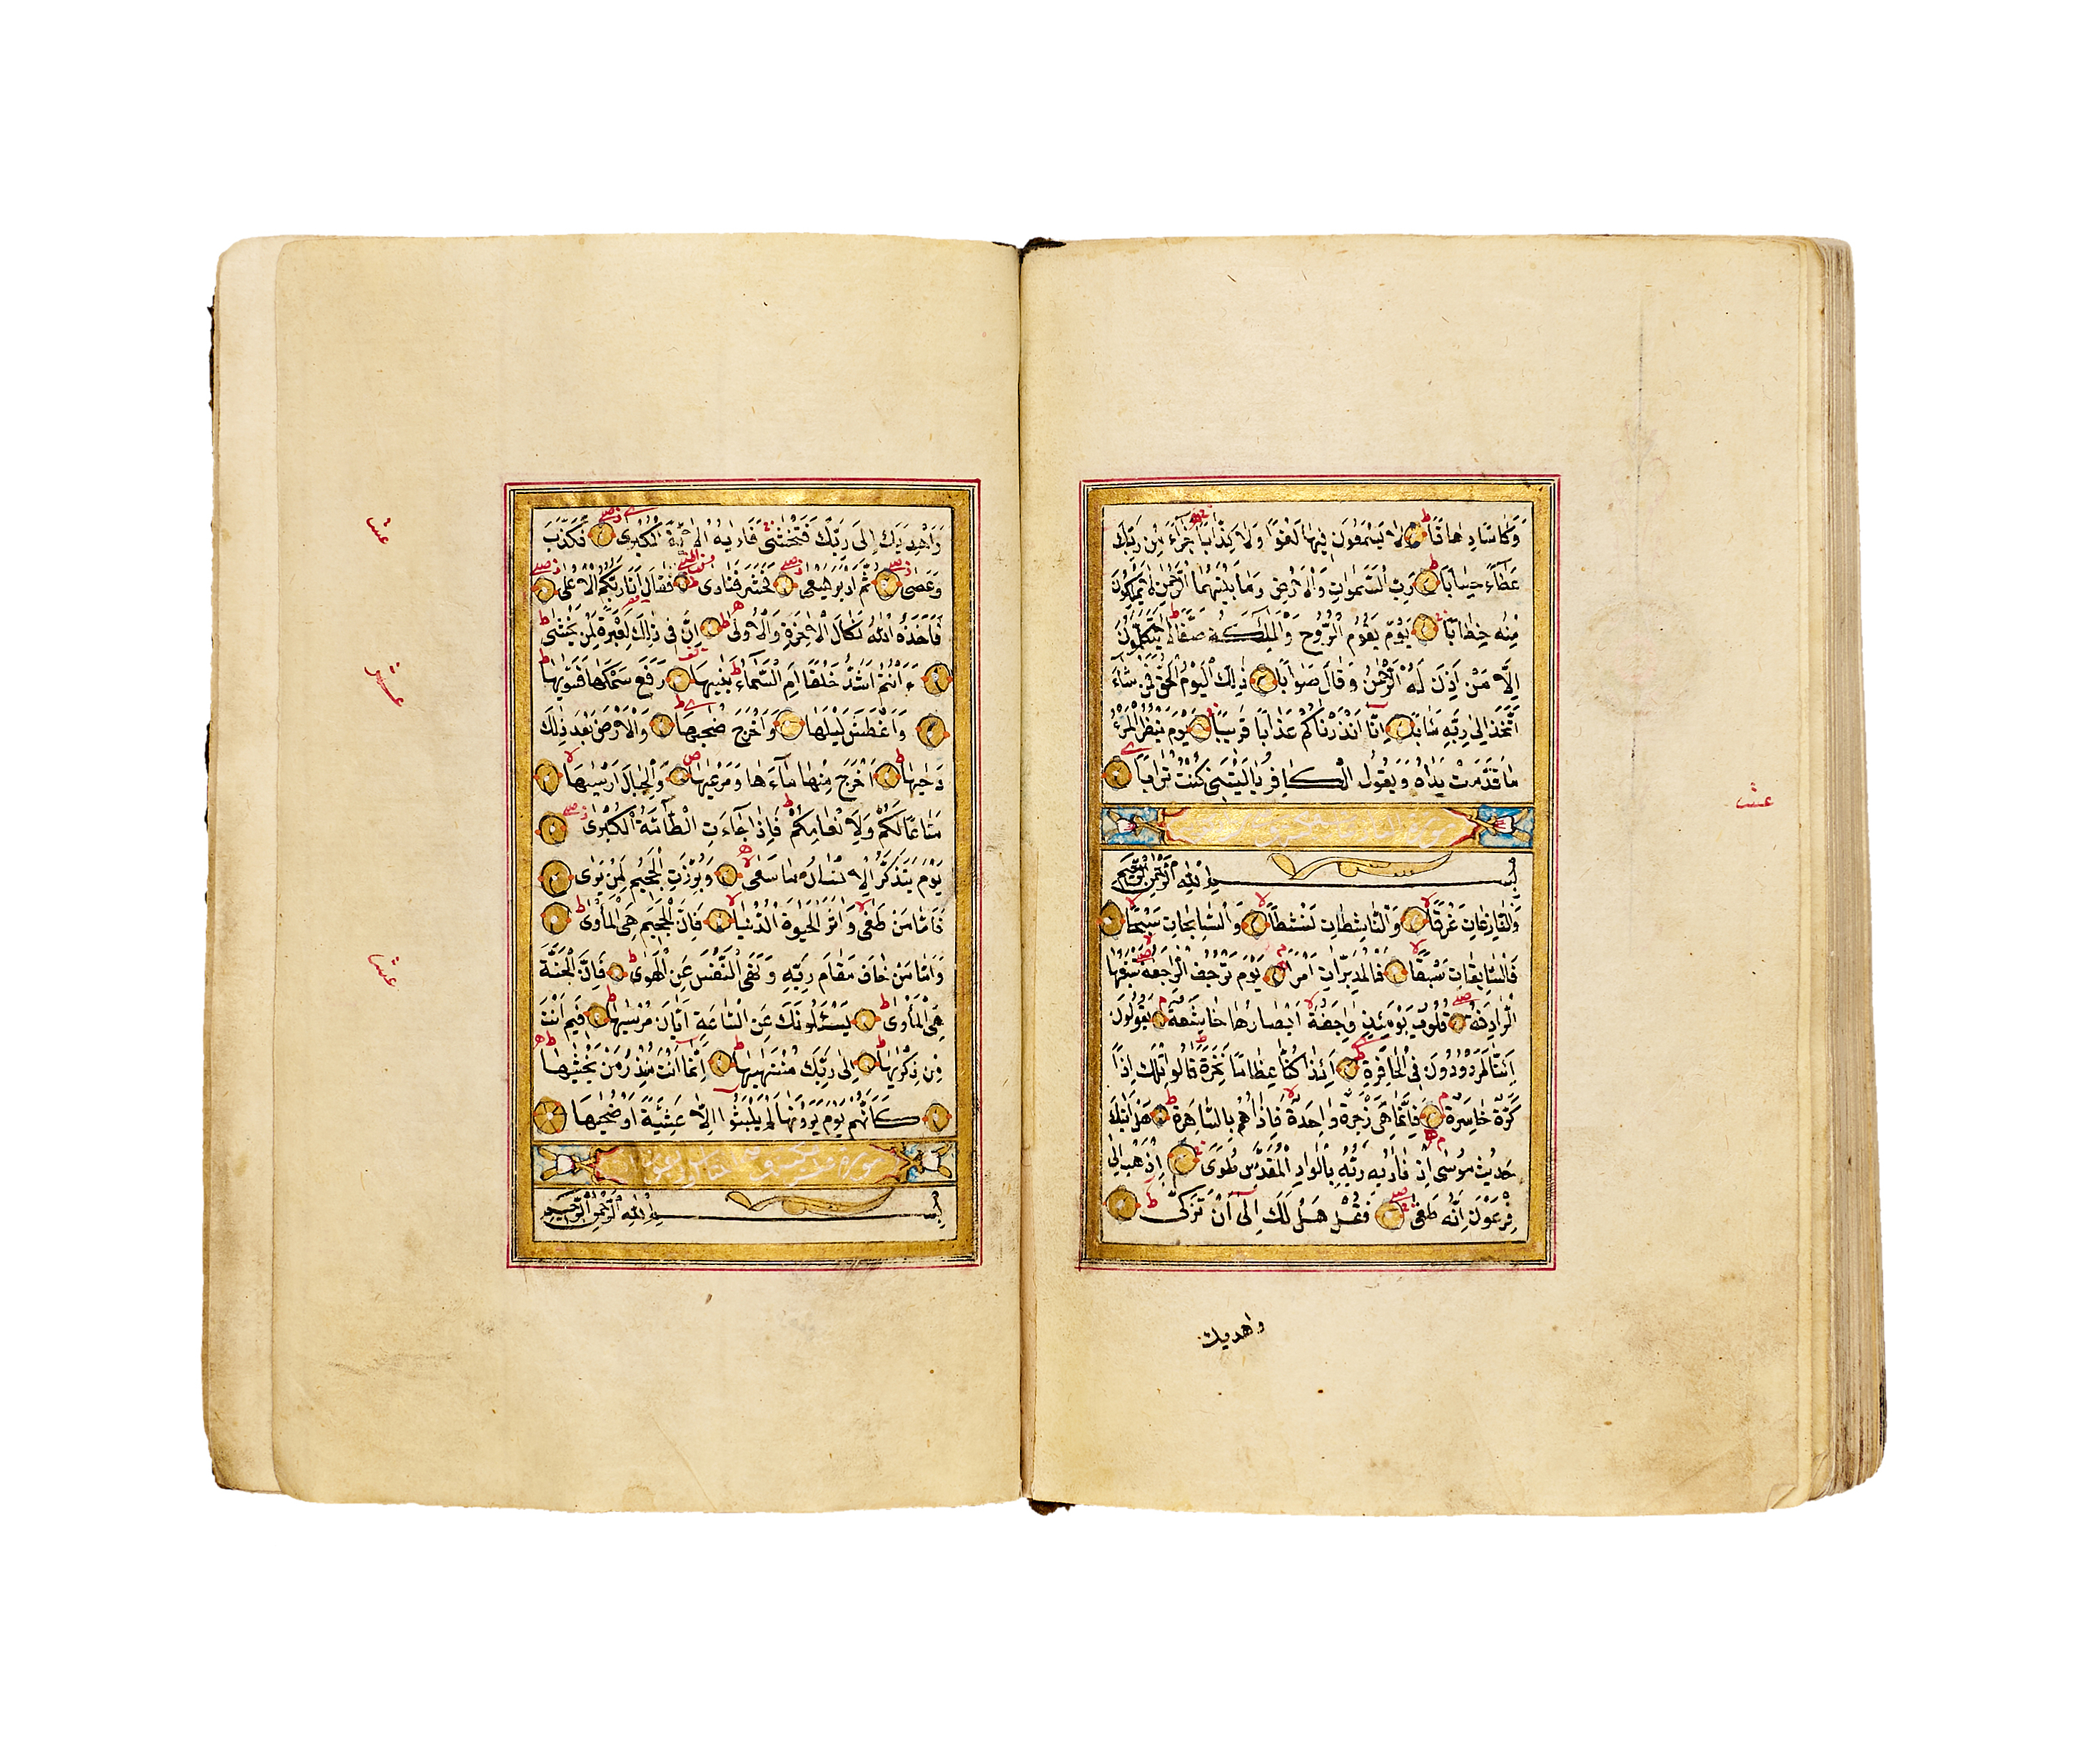 وَكَاْسًا دِهَاقًا لَا يَسْمَعُونَ فِيهَا لَغْوًا وَلَا كِذَّابًا جَزَآءً مِنْ رَبِّكَ
عَطَآءً حِسَابًا رَبِّ السَّمٰوَاتِ وَالْاَرْضِ وَمَا بَيْنَهُمَا الرَّحْمٰنِ لَا يَمْلِكُونَ
مِنْهُ خِطَابًا يَوْمَ يَقُومُ الرُّوحُ وَالْمَلٰئِكَةُ صَفًّا لَا يَتَكَلَّمُونَ
اِلَّا مَنْ اَذِنَ لَهُ الرَّحْمٰنُ وَقَالَ صَوَابًا ذٰلِكَ الْيَوْمُ الْحَقُّ فَمَنْ شَآءَ
اتَّخَذَ اِلٰى رَبِّهِ مَاٰبًا اِنَّا اَنْذَرْنَاكُمْ عَذَابًا قَرِيبًا يَوْمَ يَنْظُرُ الْمَرْءُ
مَا قَدَّمَتْ يَدَاهُ وَيَقُولُ الْكَافِرُ يَا لَيْتَنِى كُنْتُ تُرَابًا
بِسْمِ اللّٰهِ الرَّحْمٰنِ الرَّحِيمِ
وَالنَّازِعَاتِ غَرْقًا وَالنَّاشِطَاتِ نَشْطًا وَالسَّابِحَاتِ سَبْحًا
فَالسَّابِقَاتِ سَبْقًا فَالْمُدَبِّرَاتِ اَمْرًا يَوْمَ تَرْجُفُ الرَّاجِفَةُ تَتْبَعُهَا
الرَّادِفَةُ قُلُوبٌ يَوْمَئِذٍ وَاجِفَةٌ اَبْصَارُهَا خَاشِعَةٌ يَقُولُونَ
ءَاِنَّا لَمَرْدُودُونَ فِى الْحَافِرَةِ ءَاِذَا كُنَّا عِظَامًا نَخِرَةً قَالُوا تِلْكَ اِذًا
كَرَّةٌ خَاسِرَةٌ فَاِنَّمَا هِىَ زَجْرَةٌ وَاحِدَةٌ فَاِذَا هُمْ بِالسَّاهِرَةِ هَلْ اَتٰيكَ
حَدِيثُ مُوسٰى اِذْ نَادٰيهُ رَبُّهُ بِالْوَادِ الْمُقَدَّسِ طُوًى اِذْهَبْ اِلٰى
فِرْعَوْنَ اِنَّهُ طَغٰى فَقُلْ هَلْ لَكَ اِلٰٓى اَنْ تَزَكّٰى
واهديك
وَاَهْدِيَكَ اِلٰى رَبِّكَ فَتَخْشٰى فَاَرٰيهُ الْاٰيَةَ الْكُبْرٰى فَكَذَّبَ
وَعَصٰى ثُمَّ اَدْبَرَ يَسْعٰى فَحَشَرَ فَنَادٰى فَقَالَ اَنَا رَبُّكُمُ الْاَعْلٰى
فَاَخَذَهُ اللّٰهُ نَكَالَ الْاٰخِرَةِ وَالْاُولٰى اِنَّ فِى ذٰلِكَ لَعِبْرَةً لِمَنْ يَخْشٰى
ءَاَنْتُمْ اَشَدُّ خَلْقًا اَمِ السَّمَآءُ بَنٰيهَا رَفَعَ سَمْكَهَا فَسَوّٰيهَا
وَاَغْطَشَ لَيْلَهَا وَاَخْرَجَ ضُحٰيهَا وَالْاَرْضَ بَعْدَ ذٰلِكَ
دَحٰيهَا اَخْرَجَ مِنْهَا مَآءَهَا وَمَرْعٰيهَا وَالْجِبَالَ اَرْسٰيهَا
مَتَاعًا لَكُمْ وَلِاَنْعَامِكُمْ فَاِذَا جَآءَتِ الطَّآمَّةُ الْكُبْرٰى
يَوْمَ يَتَذَكَّرُ الْاِنْسَانُ مَا سَعٰى وَبُرِّزَتِ الْجَحِيمُ لِمَنْ يَرٰى
فَاَمَّا مَنْ طَغٰى وَاٰثَرَ الْحَيٰوةَ الدُّنْيَا فَاِنَّ الْجَحِيمَ هِىَ الْمَاْوٰى
وَاَمَّا مَنْ خَافَ مَقَامَ رَبِّهِ وَنَهَى النَّفْسَ عَنِ الْهَوٰى فَاِنَّ الْجَنَّةَ
هِىَ الْمَاْوٰى يَسْئَلُونَكَ عَنِ السَّاعَةِ اَيَّانَ مُرْسٰيهَا فِيمَ اَنْتَ
مِنْ ذِكْرٰيهَا اِلٰى رَبِّكَ مُنْتَهٰيهَا اِنَّمَا اَنْتَ مُنْذِرُ مَنْ يَخْشٰيهَا
كَاَنَّهُمْ يَوْمَ يَرَوْنَهَا لَمْ يَلْبَثُوا اِلَّا عَشِيَّةً اَوْ ضُحٰيهَا
بِسْمِ اللّٰهِ الرَّحْمٰنِ الرَّحِيمِ